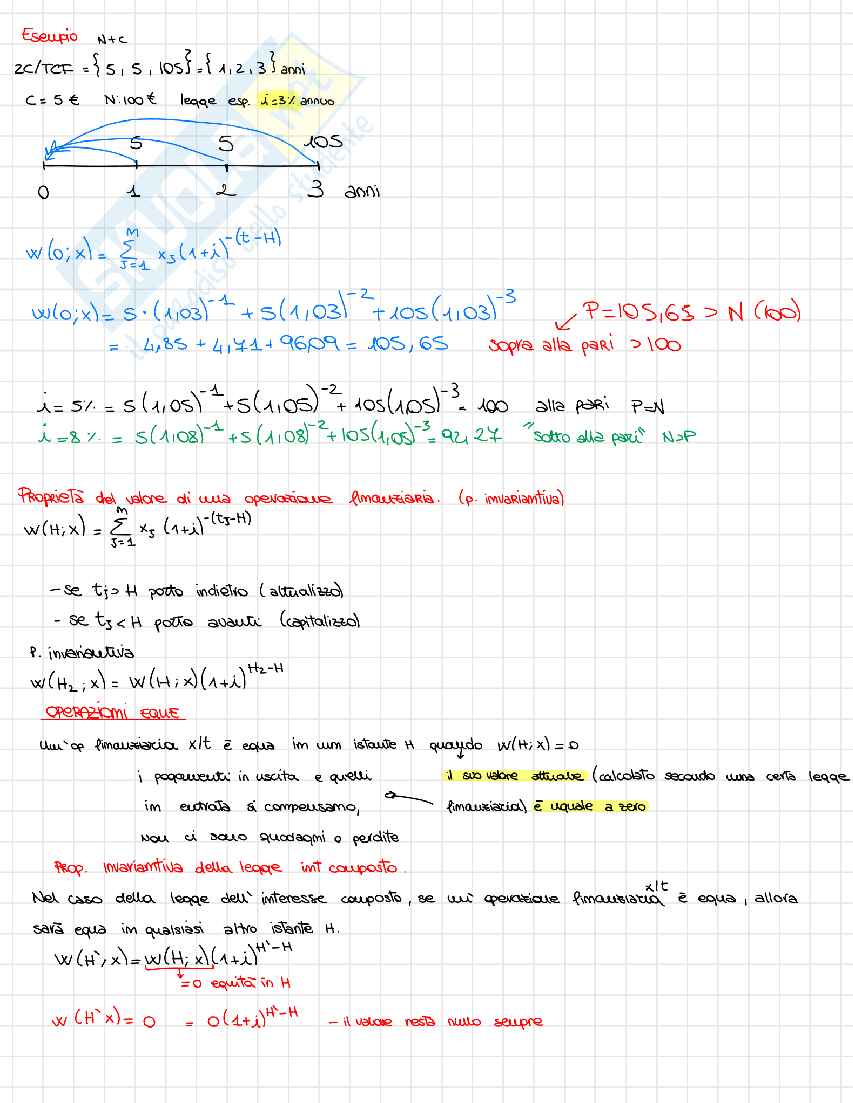 Esempio N+C
ZC/TCF = {5, 5, 105} = {1, 2, 3} anni
C = 5 € N: 100 € legge esp. i=3% annuo
5 5 105
0 1 2 3 anni
W(0;x) = Σ_{J=1}^{m} x_J (1+i)^{-(t-H)}
W(0;x) = 5·(1,03)^{-1} + 5(1,03)^{-2} + 105(1,03)^{-3} P=105,65 > N (100)
= 4,85 + 4,71 + 96,09 = 105,65 sopra alla pari > 100
i = 5% = 5(1,05)^{-1} + 5(1,05)^{-2} + 105(1,05)^{-3} = 100 alla pari P=N
i = 8% = 5(1,08)^{-1} + 5(1,08)^{-2} + 105(1,05)^{-3} = 92,27 "sotto alla pari" N>P
Proprietà del valore di una operazione finanziaria. (p. invariantiva)
W(H;x) = Σ_{J=1}^{m} x_J (1+i)^{-(t_J-H)}
- se t_j > H porto indietro (attualizzo)
- se t_J < H porto avanti (capitalizzo)
P. invariantiva
W(H_2;x) = W(H;x)(1+i)^{H_2-H}
OPERAZIONI EQUE
Un'op finanziaria x/t è equa in un istante H quando W(H;x) = 0
i pagamenti in uscita e quelli il suo valore attuale (calcolato secondo una certa legge
in entrata si compensano, finanziaria) è uguale a zero
Non ci sono guadagni o perdite
Prop. invariantiva della legge int composto.
Nel caso della legge dell'interesse composto, se un'operazione finanziaria x/t è equa, allora
sarà equa in qualsiasi altro istante H.
W(H',x) = W(H;x)(1+i)^{H'-H}
=0 equità in H
W(H'x) = 0 = 0(1+i)^{H'-H} - il valore resta nullo sempre
SKUOLA.net
il paradiso dello studente